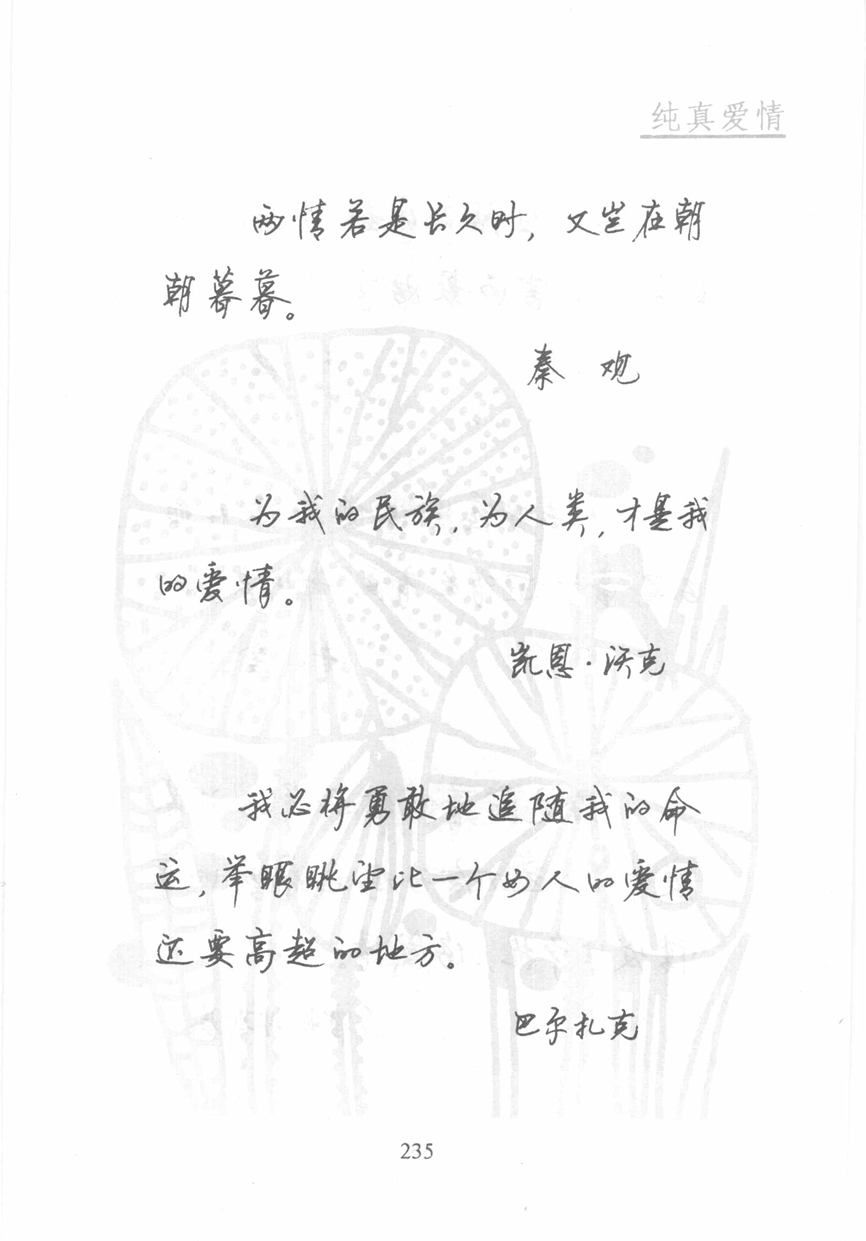 纯真爱情
两情若是长久时，又岂在朝
朝暮暮。
秦 观
为我的民族，为人类，才是我
的爱情。
凯恩·沃克
我必将勇敢地追随我的命
运，举眼眺望比一个女人的爱情
还要高超的地方。
巴尔扎克
235